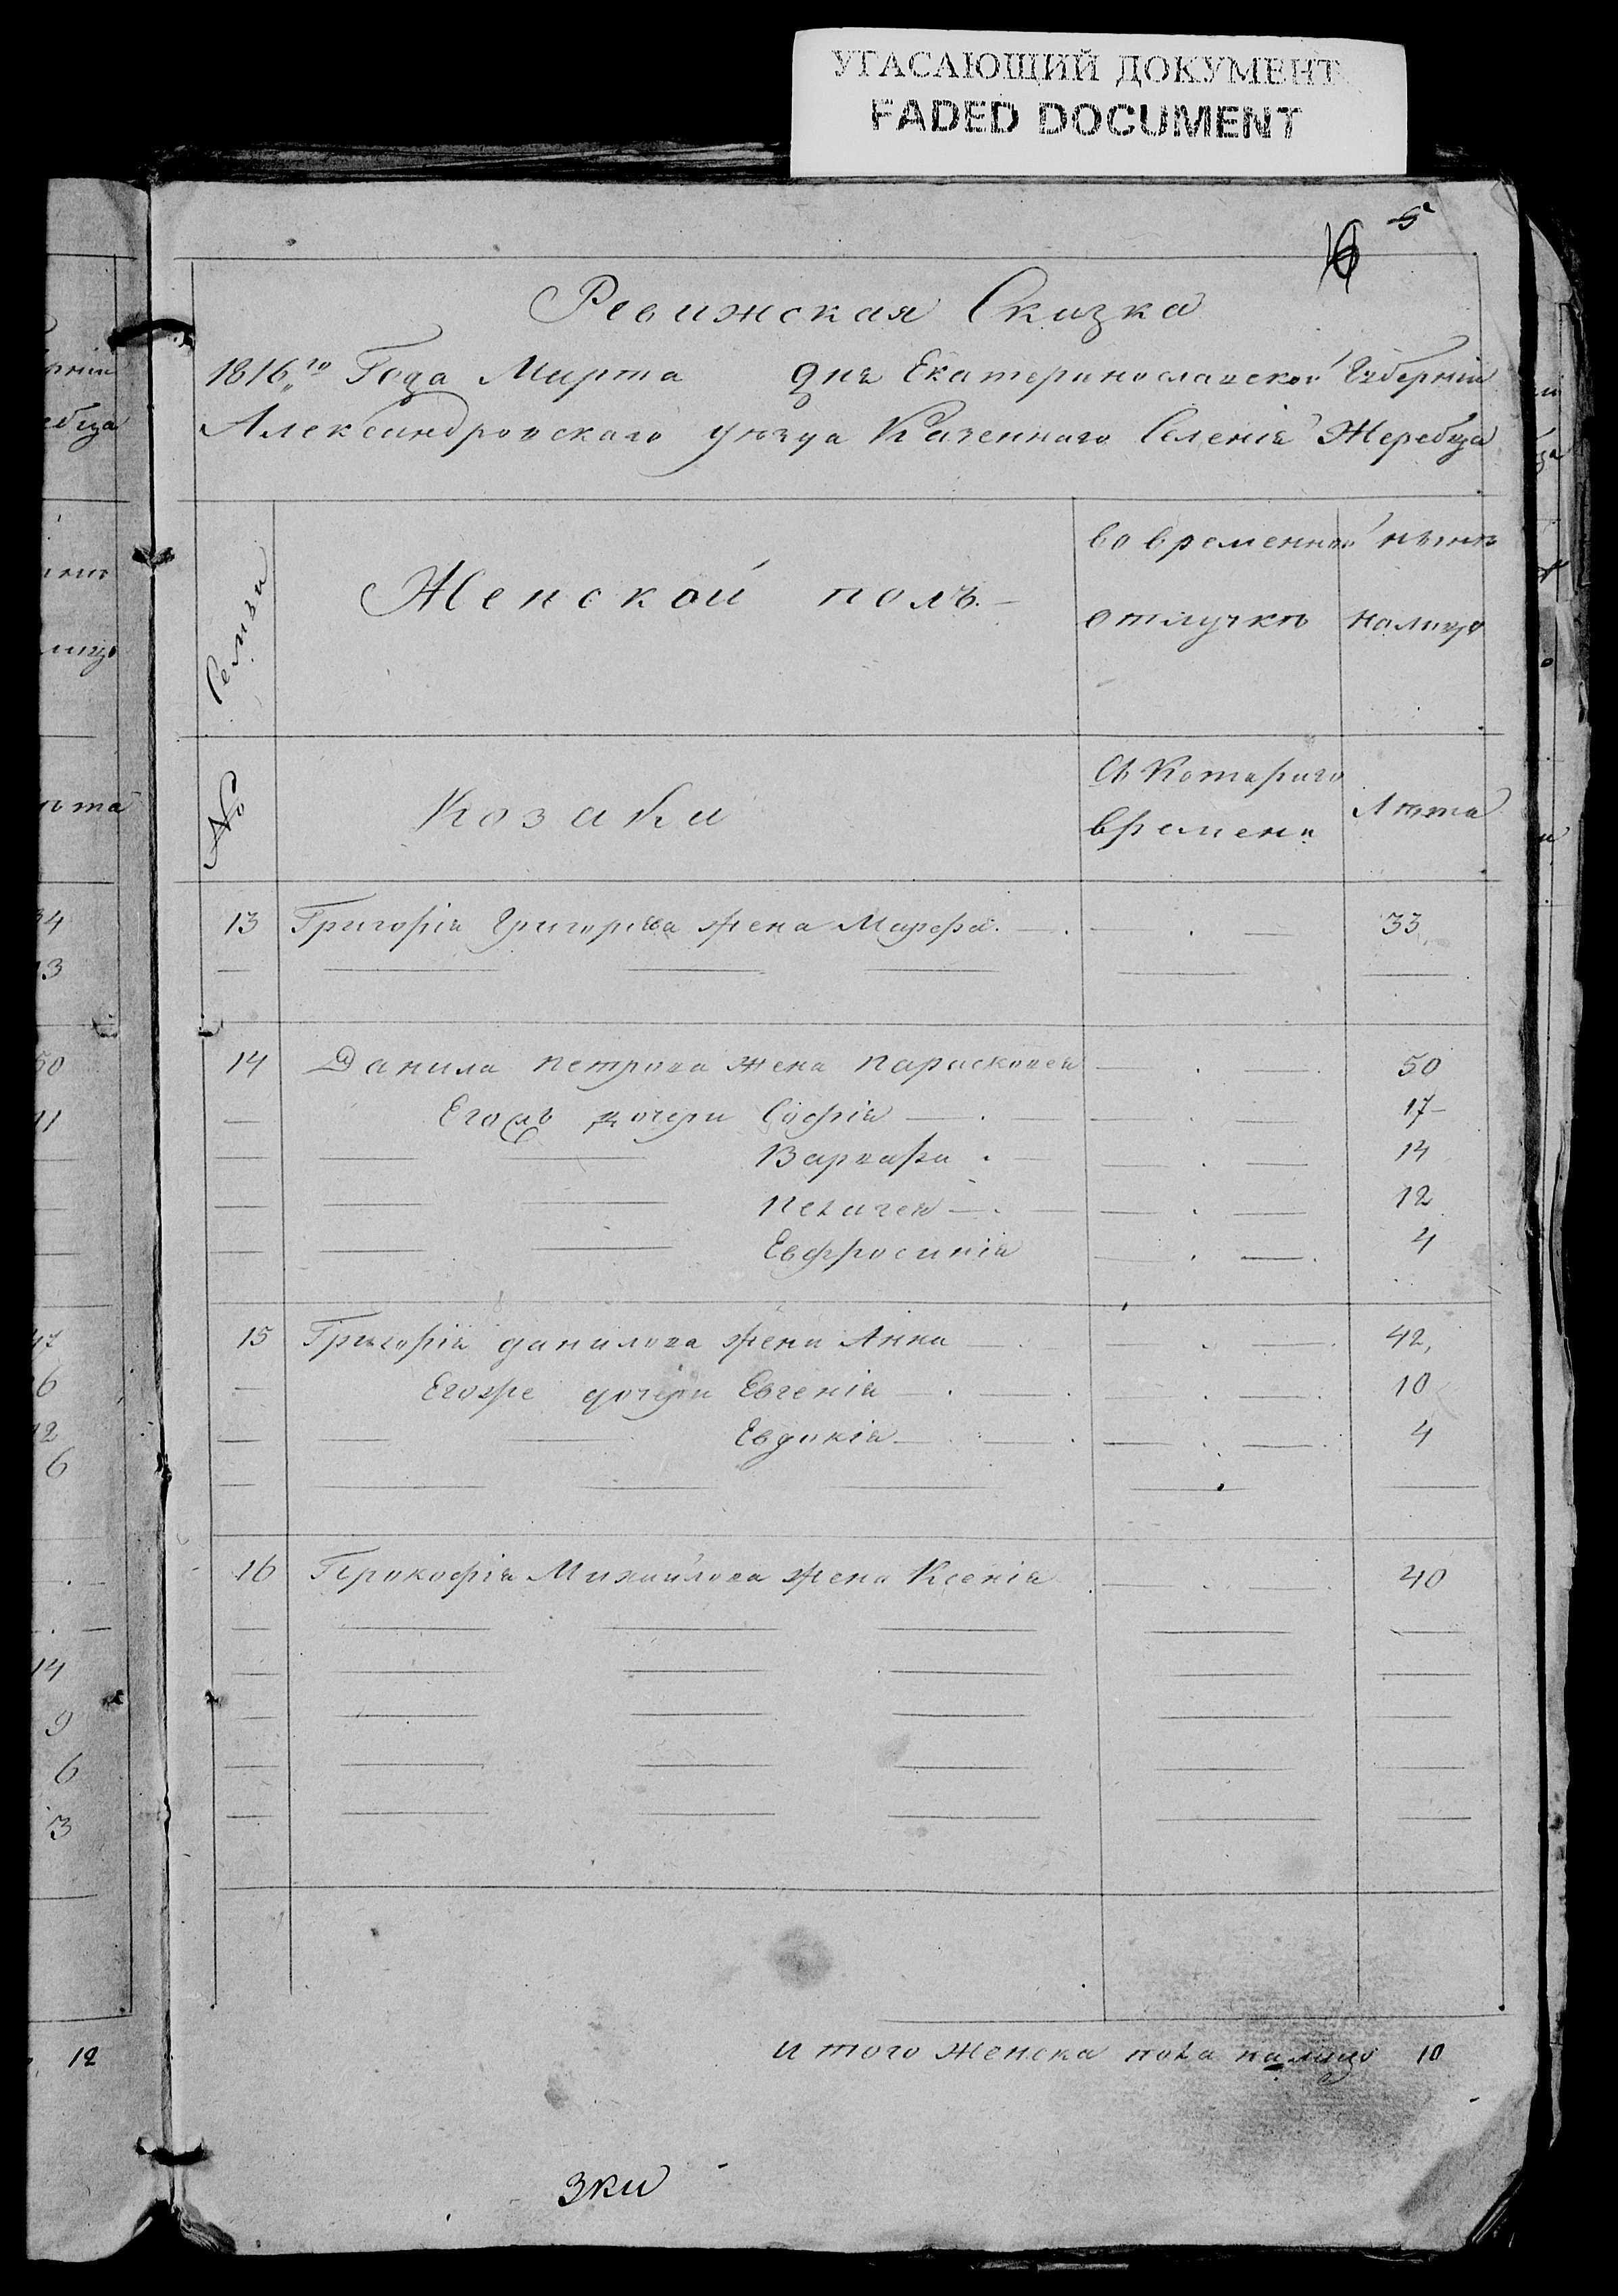 УГАСАЮЩИЙ ДОКУМЕНТ
FADED DOCUMENT
5
6
Ревижская Сказка
1816го Года Марта дня Екатеринославской Губернии
Александровского уезда Казенного Селения Жеребца
Женской полъ.
во временной
отлучке
ныне
налицо
Семьи
№
Козаки
Съ Которого
времени
Лета
13 Григория Григорьева жена Марфа. 33
14 Данила Петрова жена Парасковея 50
Егожъ дочери София 17
Варвара 14
Пелагея 12
Евфросиния 4
15 Григория Данилова жена Анна 42,
Егоже дочери Евгения 10
Евдокия 4
16 Прокофия Михайлова жена Ксения 40
и того женска пола налицо 10
зки
рнии
ебца
лицо
ета
34
13
50
11
47
6
12
6
14
9
6
3
12